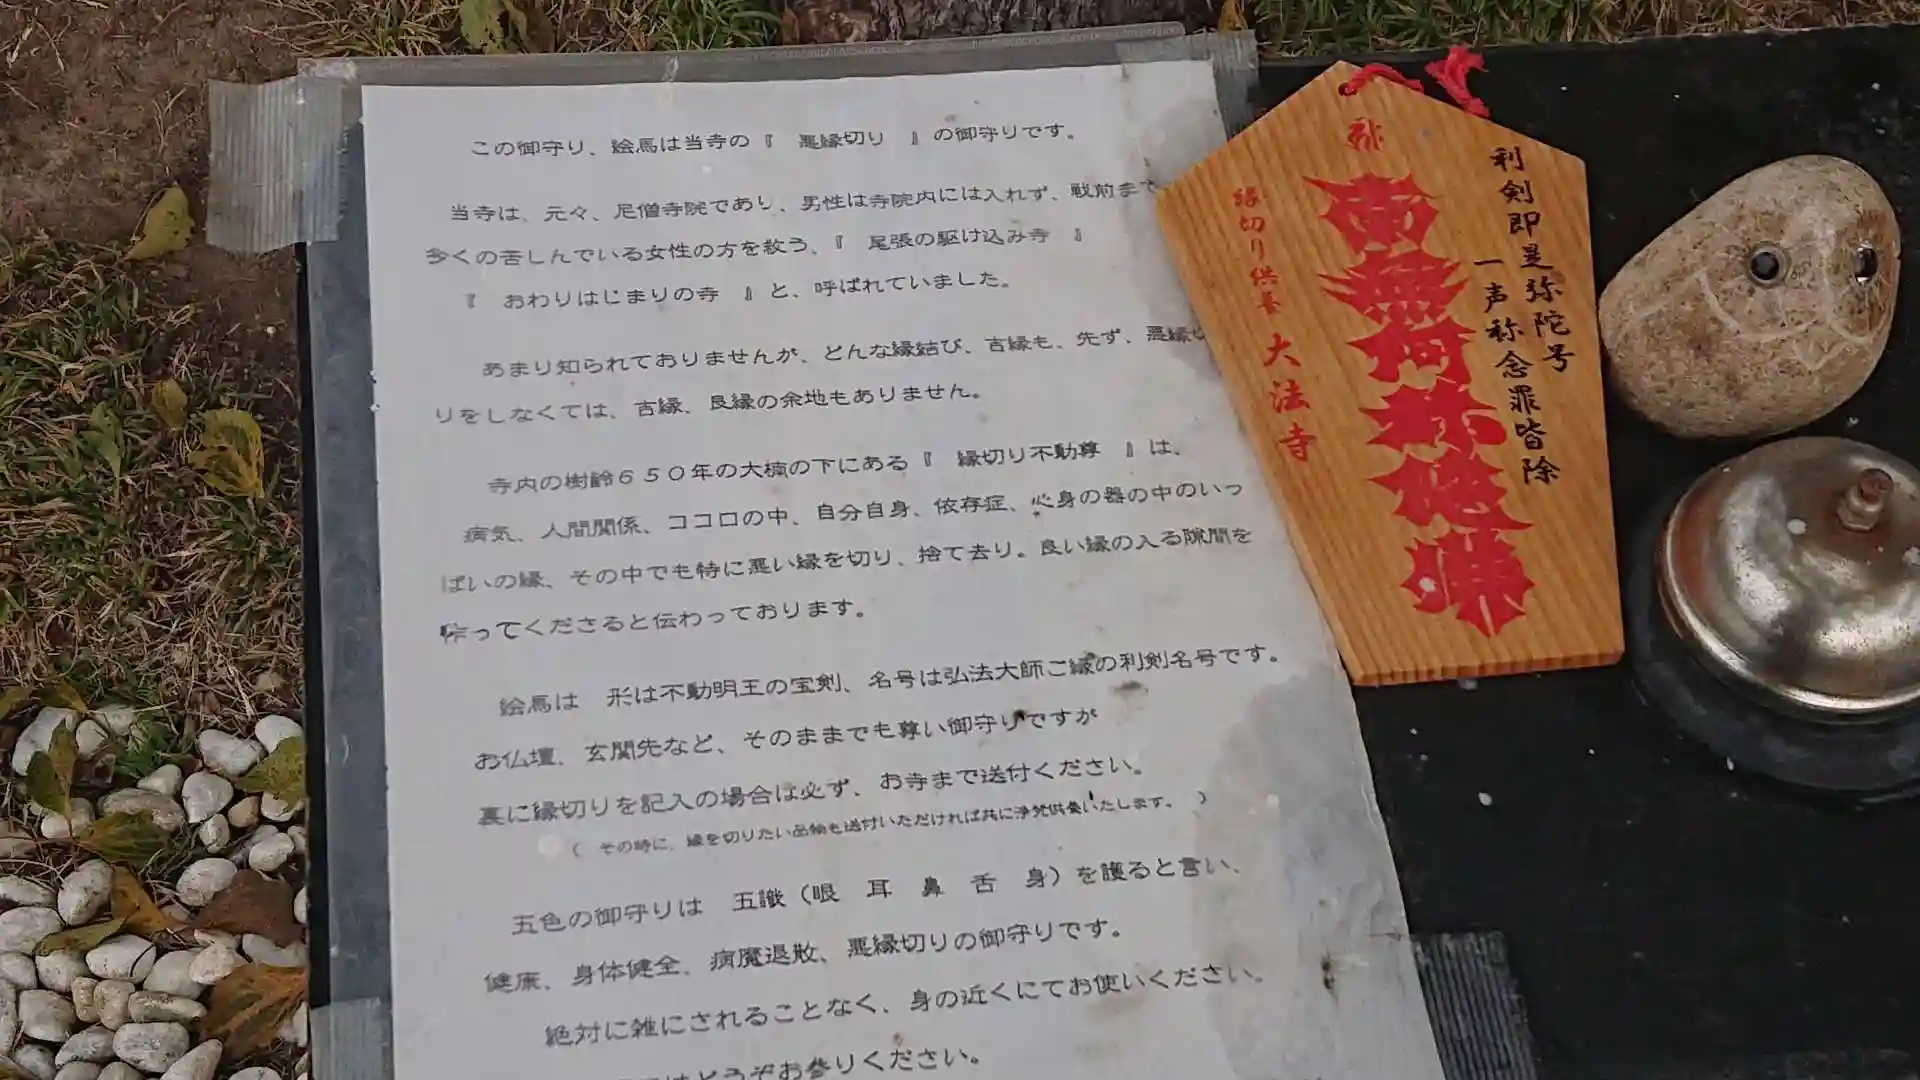 この御守り、絵馬は当寺の『 悪縁切り 』の御守りです。
当寺は、元々、尼僧寺院であり、男性は寺院内には入れず、戦前まで
多くの苦しんでいる女性の方を救う、『 尾張の駆け込み寺 』
『 おわりはじまりの寺 』と、呼ばれていました。
あまり知られておりませんが、どんな縁結び、吉縁も、先ず、悪縁切
りをしなくては、吉縁、良縁の余地もありません。
寺内の樹齢650年の大楠の下にある『 縁切り不動尊 』は、
病気、人間関係、ココロの中、自分自身、依存症、心身の器の中のいっ
ぱいの縁、その中でも特に悪い縁を切り、捨て去り。良い縁の入る隙間を
作ってくださると伝わっております。
絵馬は 形は不動明王の宝剣、名号は弘法大師ご縁の利剣名号です。
お仏壇、玄関先など、そのままでも尊い御守りですが
裏に縁切りを記入の場合は必ず、お寺まで送付ください。
( その時に、縁を切りたい品物も送付いただければ共に浄梵供養いたします。 )
五色の御守りは 五識(眼 耳 鼻 舌 身)を護ると言い、
健康、身体健全、病魔退散、悪縁切りの御守りです。
絶対に雑にされることなく、身の近くにてお使いください。
はどうぞお参りください。
利剣即是弥陀号
一声称念罪皆除
南無阿弥陀佛
縁切り供養 大法寺